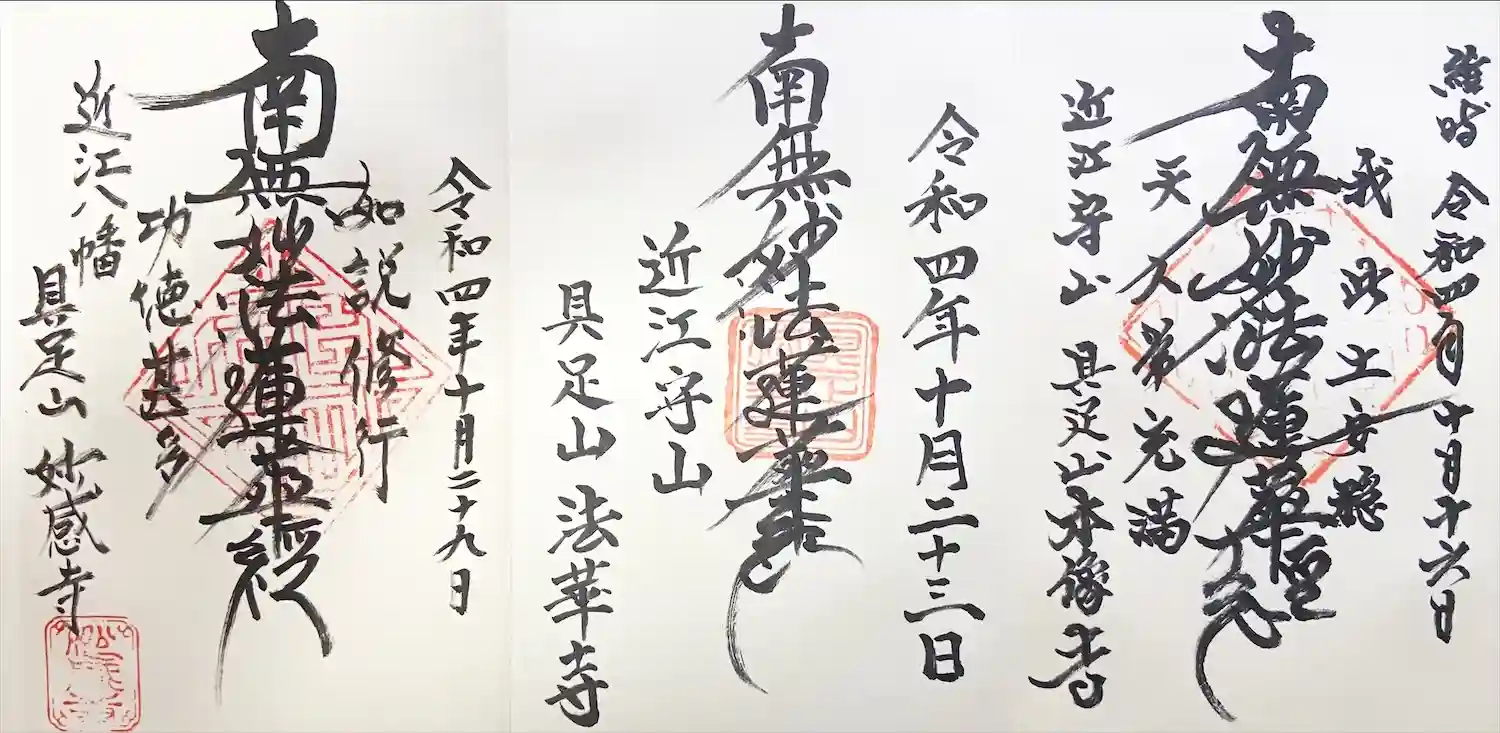 維時 令和四年 十月十六日
我此土安穏
南無妙法蓮華経
天人常充満
近江守山 具足山本像寺
令和四年十月二十三日
南無妙法蓮華経
近江守山
具足山 法華寺
令和四年十月二十九日
如説修行
南無妙法蓮華経
功徳甚多
近江八幡
具足山 妙感寺